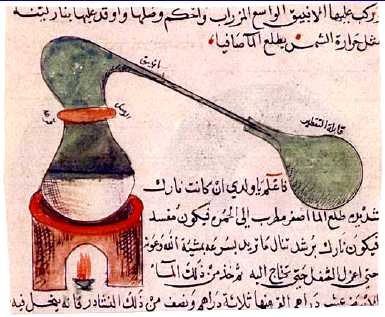 يركب عليها الانبيق الواسع المزراب ولحكم وصلها واوقد عليها بنار لينه
مثل حرارة الشمس يطلع الما صافيا
انبيق
قابلة التقطير
فاعلم يا ولدي ان كانت نارك
شديده طلع الما اصفر مطرب الى الحمره فيكون مفسد
فيكون نارك برشد تنال ما تريد بسرعه بمشية الله وعونه
اعزل السفل حتى تحتاج اليه ثم خذ من ذلك الماء
عشر دراهم ثلاثة دراهم ونصف من ذلك النشادر فانه ينحل فيه